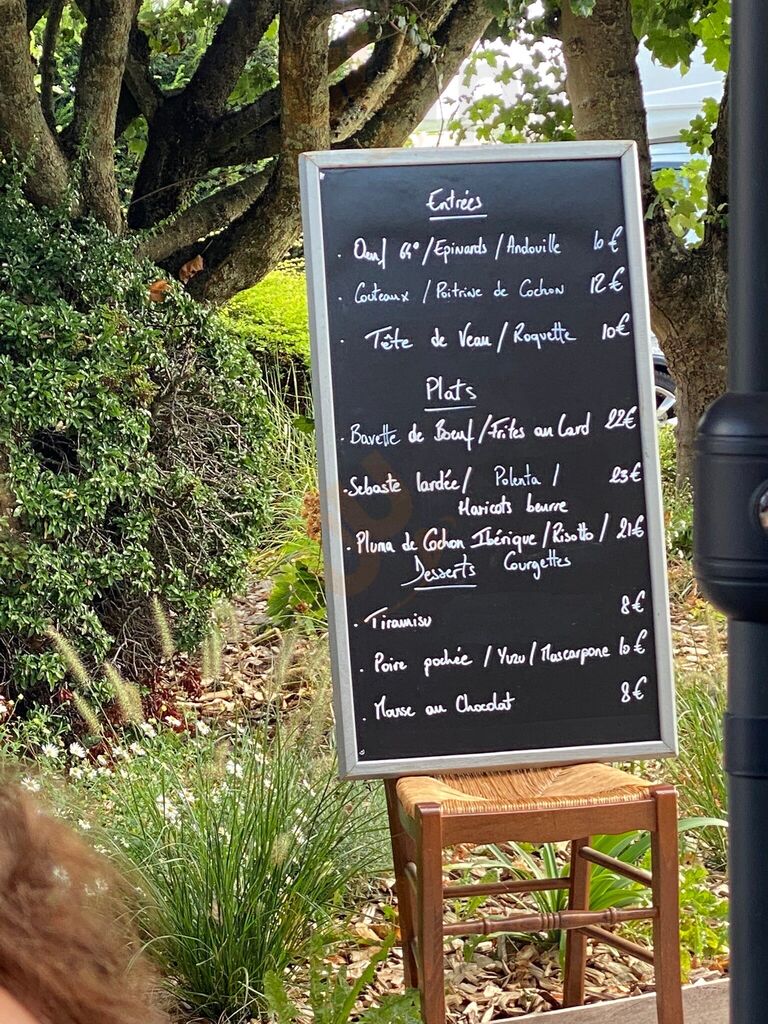 Entrées
. Oeuf 64° / Epinards / Andouille 10€
. Couteaux / Poitrine de Cochon 12€
. Tête de Veau / Roquette 10€
Plats
. Bavette de Boeuf / Frites au Lard 22€
. Sebaste lardée / Polenta / 23€
Haricots beurre
. Pluma de Cochon Ibérique / Risotto / 21€
Courgettes
Desserts
. Tiramisu 8€
. Poire pochée / Yuzu / Mascarpone 10€
. Mousse au Chocolat 8€